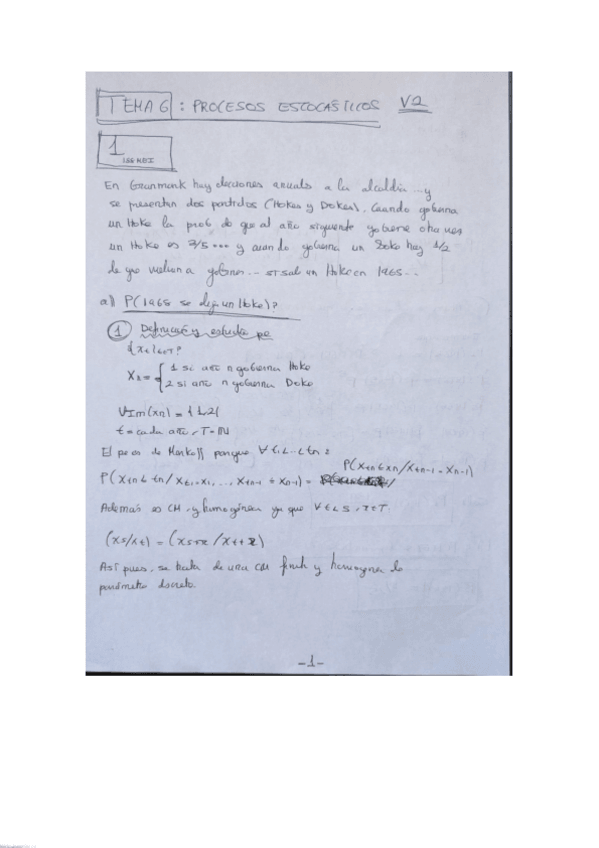 TEMA 6: PROCESOS ESTOCÁSTICOS V2
1
En Granmonk hay elecciones anuales a la alcaldía … y
se presentan dos partidos (Hokes y Dokes). Cuando gobierna
un Hoke la prob de que al año siguiente gobierne otra vez
un Hoke es … y cuando gobierna un Doke hay 1/2
de que vuelvan a gobernar … si sale un Hoke en 1965 ..
a) P(1968 se elija un Hoke)?
1 Definición y estudio pe
{Xt|t∈T}
Xn = { 1 si año n gobierna Hoke
2 si año n gobierna Doke
Im(Xn) = {1,2}
t = cada año, T = IN
El peos de Markoff porque ∀ t1<...<tn :
P(Xtn ≤ xn/Xtn-1 = Xn-1)
P(Xtn ≤ tn/ Xt1=X1, ..., Xtn-1 = Xn-1) =
Además es CM y homogénea ya que ∀ t<s, z∈T
(Xs/Xt) = (Xs+z / Xt+z)
Así pues, se trata de una CM finita y homogénea de
parámetro discreto.
-1-